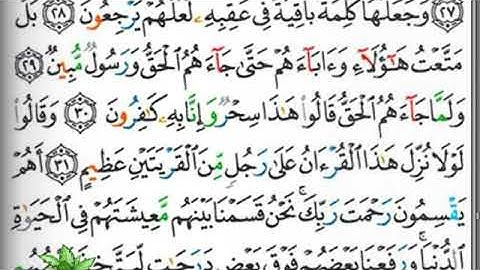 ﴿٢٧﴾ وَجَعَلَهَا كَلِمَةًۢ بَاقِيَةً فِي عَقِبِهِۦ لَعَلَّهُمْ يَرْجِعُونَ ﴿٢٨﴾ بَلْ
مَتَّعْتُ هَٰٓؤُلَآءِ وَءَابَآءَهُمْ حَتَّىٰ جَآءَهُمُ ٱلْحَقُّ وَرَسُولٌ مُّبِينٌ ﴿٢٩﴾
وَلَمَّا جَآءَهُمُ ٱلْحَقُّ قَالُوا۟ هَٰذَا سِحْرٌ وَإِنَّا بِهِۦ كَٰفِرُونَ ﴿٣٠﴾ وَقَالُوا۟
لَوْلَا نُزِّلَ هَٰذَا ٱلْقُرْءَانُ عَلَىٰ رَجُلٍ مِّنَ ٱلْقَرْيَتَيْنِ عَظِيمٍ ﴿٣١﴾ أَهُمْ
يَقْسِمُونَ رَحْمَتَ رَبِّكَ ۚ نَحْنُ قَسَمْنَا بَيْنَهُم مَّعِيشَتَهُمْ فِي ٱلْحَيَوٰةِ
ٱلدُّنْيَا ۚ وَرَفَعْنَا بَعْضَهُمْ فَوْقَ بَعْضٍ دَرَجَٰتٍ لِّيَتَّخِذَ